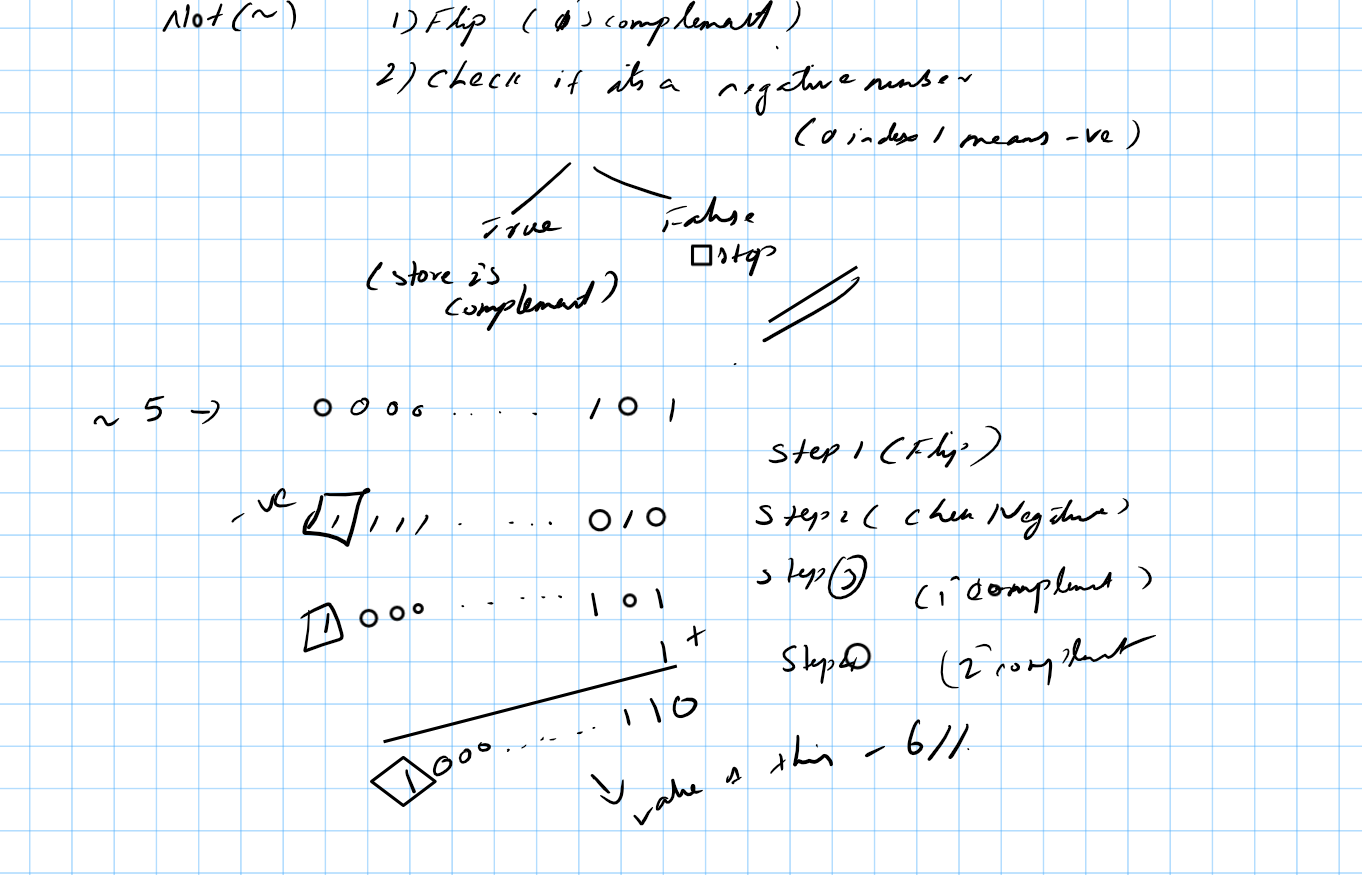 Not(~) 1) Flip ( 1's complement )
2) Check if its a negative number
(0 index 1 means -ve)
True False
(store 2's stop
complement)
~ 5 → 0 0 0 0 ....... 1 0 1
Step 1 (Flip)
-ve 1 1 1 1 . ... 0 1 0 Step 2 ( chek Negative)
step 3 (1' complement)
1 0 0 0 ....... 1 0 1
1 +
Step 4 (2 complement
1 0 0 0 ....... 1 1 0
value is this - 6 //